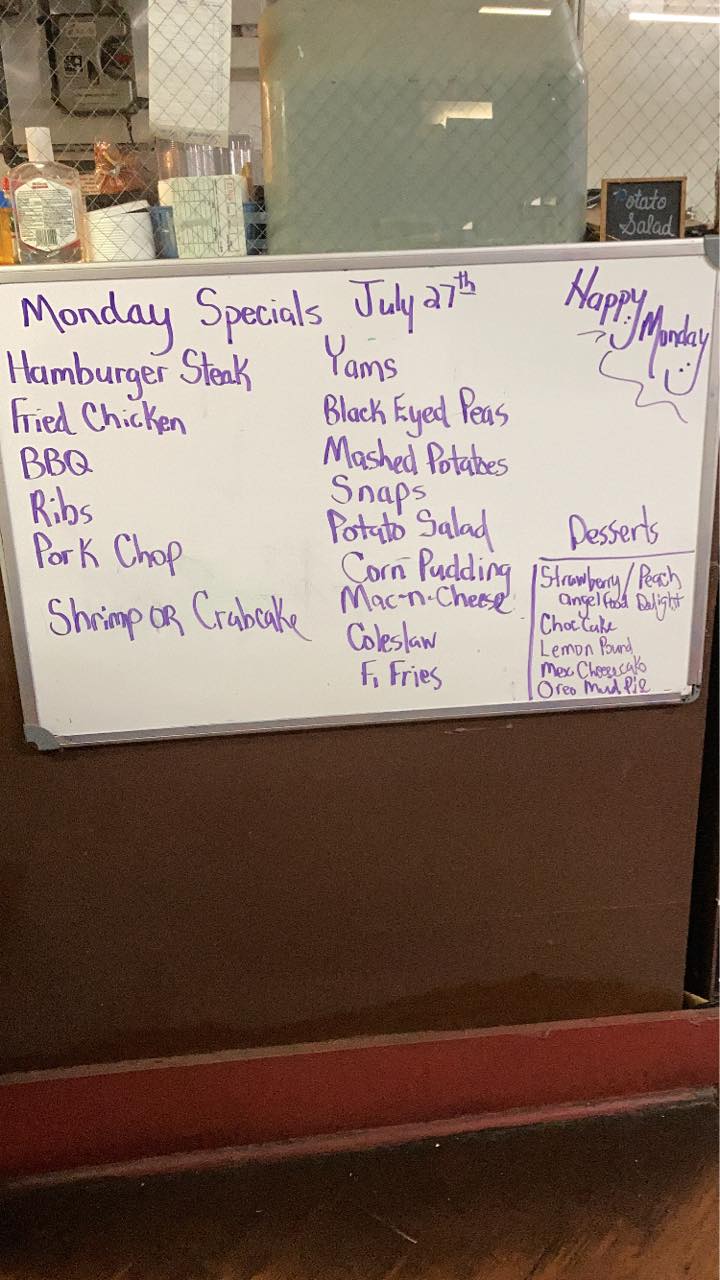 Potato
Salad
Monday Specials July 27th
Happy
Monday
Hamburger Steak
Fried Chicken
BBQ
Ribs
Pork Chop
Shrimp OR Crabcake
Yams
Black Eyed Peas
Mashed Potatoes
Snaps
Potato Salad
Corn Pudding
Mac-n-Cheese
Coleslaw
F. Fries
Desserts
Strawberry / Peach
angel food Delight
Choc Cake
Lemon Pound
Mex Cheesecake
Oreo Mud Pie